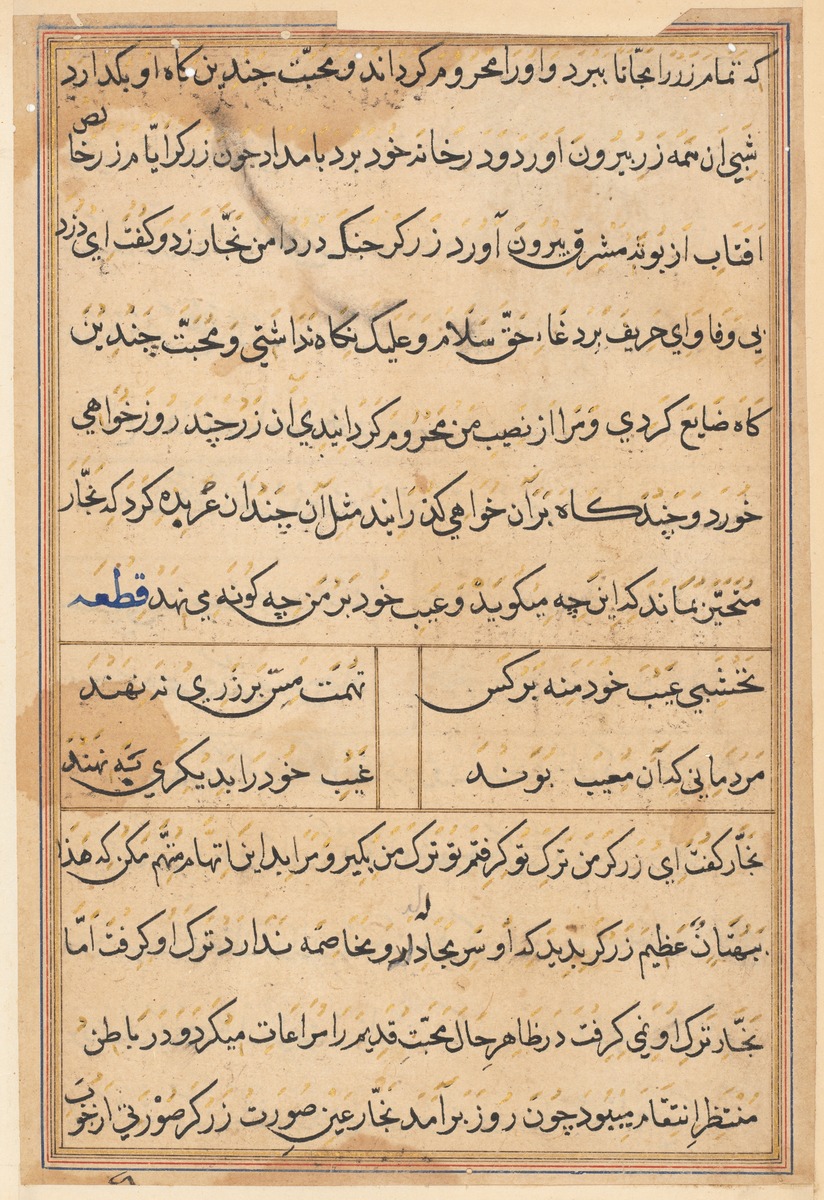 که تمام زر را مجّانا ببرد و او را محروم کرداند و محبّت چندین کاه او بکدارد
شبی ان همه زر بیرون آورد و در خانه خود برد بامداد چون زرکر ایّام زر خالص
افتاب از بوته مشرق بیرون آورد زرکر چنک در دامن نجّار زد و کفت ای دزد
بی وفا و ای حریف پر دغا، حقّ سلام و علیک نکاه نداشتی و محبّت چندین
کاه ضایع کردی و مرا از نصیب من محروم کردانیدی ان زر چند روز خواهی
خورد و چند کاه بر آن خواهی کذرانید مثل آن چندان عربده کرد که نجّار
متحیّر بماند که این چه میکوید و عیب خود بر من چه کونه می نهد قطعه
نخشبی عیب خود منه بر کس
تهمت مسّ بر زری نه نهند
مردمانی که آن معیب بوند
عیب خود را بدیکری نه نهند
نجّار کفت ای زرکر من ترک تو کرفتم تو ترک من بکیر و مرا بدین اتهام متّهم مکن که هذا
بهتانٌ عظیم زرکر بدید که او سر مجادله و مخاصمه ندارد ترک او کرفت امّا
نجّار ترک او نمی کرفت در ظاهر حال محبّت قدیم را مراعات میکرد و در باطن
منتظر انتقام میبود چون روز برآمد نجّار عین صورت زرکر صورتی از خوب